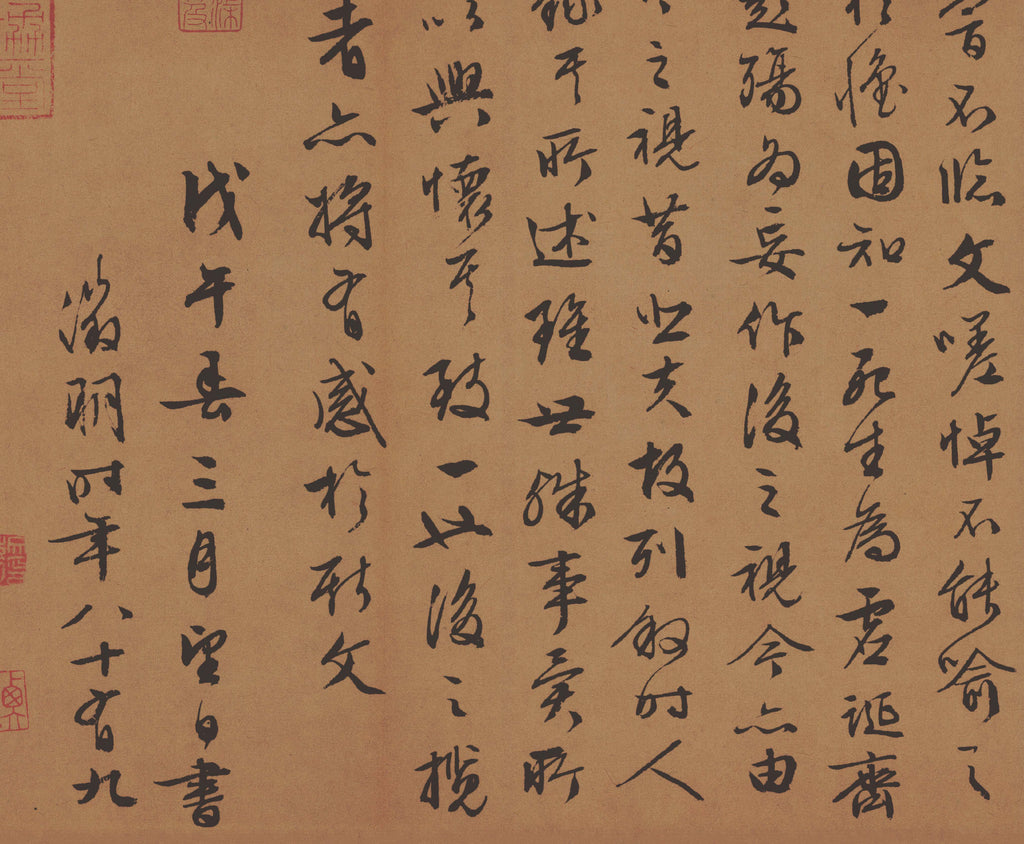 嘗不臨文嗟悼不能喻之
於懷固知一死生為虛誕齊
彭殤為妄作後之視今亦由
之視昔悲夫故列敘時人
錄其所述雖世殊事異所
以興懷其致一也後之攬
者亦將有感於斯文
戊午春三月望日書
徵明時年八十有九